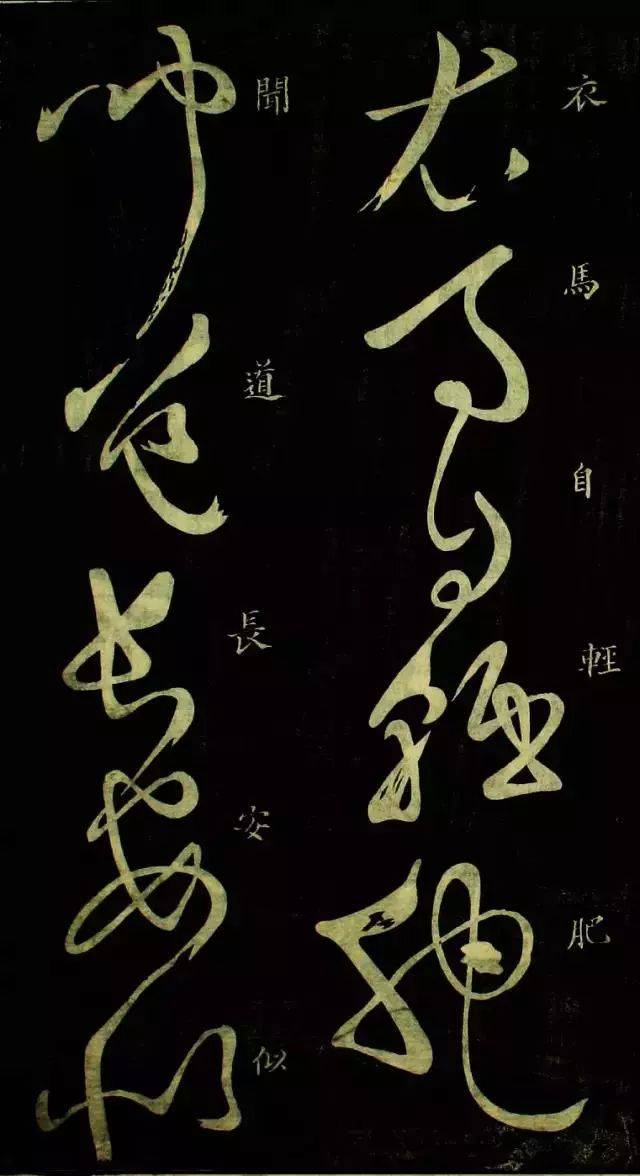 衣馬自輕肥
聞道長安似